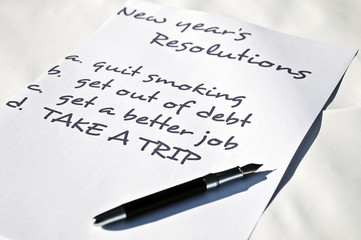 New year's
Resolutions
a. quit smoking
b. get out of debt
c. get a better job
d. TAKE A TRIP